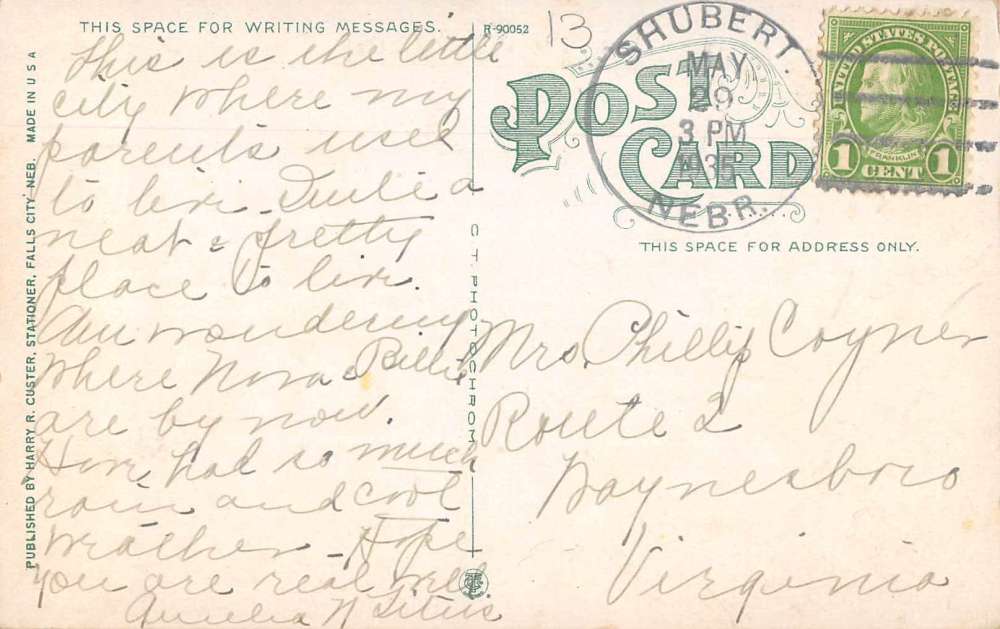 THIS SPACE FOR WRITING MESSAGES.
This is the little
city where my
parents used
to live. Quite a
neat & pretty
place to live.
Am wondering
where Nora & Billie
are by now.
Have had so much
rain and cool
weather - Hope
you are real well
Titus
PUBLISHED BY HARRY R. CUSTER, STATIONER, FALLS CITY, NEB. MADE IN U S A
R-90052
13
C T PHOTOCHROM
POST CARD
SHUBERT.
MAY
29
3 PM
1935
NEBR.
UNITED STATES POSTAGE
FRANKLIN
1 CENT 1
THIS SPACE FOR ADDRESS ONLY.
Mrs. Phillip Coyner
Route 2
Waynesboro
Virginia